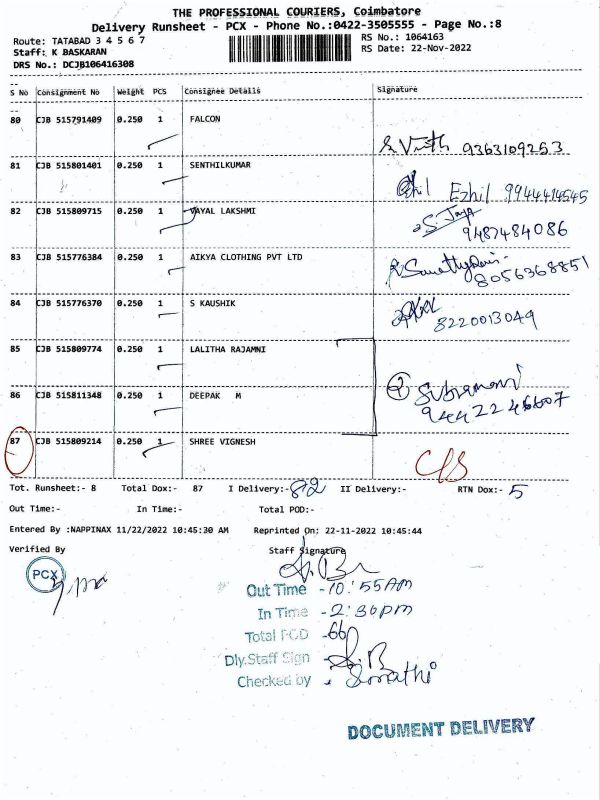 THE PROFESSIONAL COURIERS, Coimbatore
Delivery Runsheet - PCX - Phone No.:0422-3505555 - Page No.:8
Route: TATABAD 3 4 5 6 7
RS No.: 1064163
Staff: K BASKARAN
RS Date: 22-Nov-2022
DRS No.: DCJB106416308
S No Consignment No Weight PCS Consignee Details Signature
80 CJB 515791409 0.250 1 FALCON
9363109253
81 CJB 515801401 0.250 1 SENTHILKUMAR
Ezhil 9944414545
82 CJB 515809715 0.250 1 VAYAL LAKSHMI
S. Jaya
9487484086
83 CJB 515776384 0.250 1 AIKYA CLOTHING PVT LTD
8056368851
84 CJB 515776370 0.250 1 S KAUSHIK
8220013049
85 CJB 515809774 0.250 1 LALITHA RAJAMNI
86 CJB 515811348 0.250 1 DEEPAK M
2 Subramani
9442246607
87 CJB 515809214 0.250 1 SHREE VIGNESH
Tot. Runsheet:- 8 Total Dox:- 87 I Delivery:- 82 II Delivery:- RTN Dox:- 5
Out Time:- In Time:- Total POD:-
Entered By :NAPPINAX 11/22/2022 10:45:30 AM Reprinted On: 22-11-2022 10:45:44
Verified By Staff Signature
PCX
Out Time - 10:55AM
In Time - 2:30pm
Total POD - 66
Dly.Staff Sign
Checked by
DOCUMENT DELIVERY